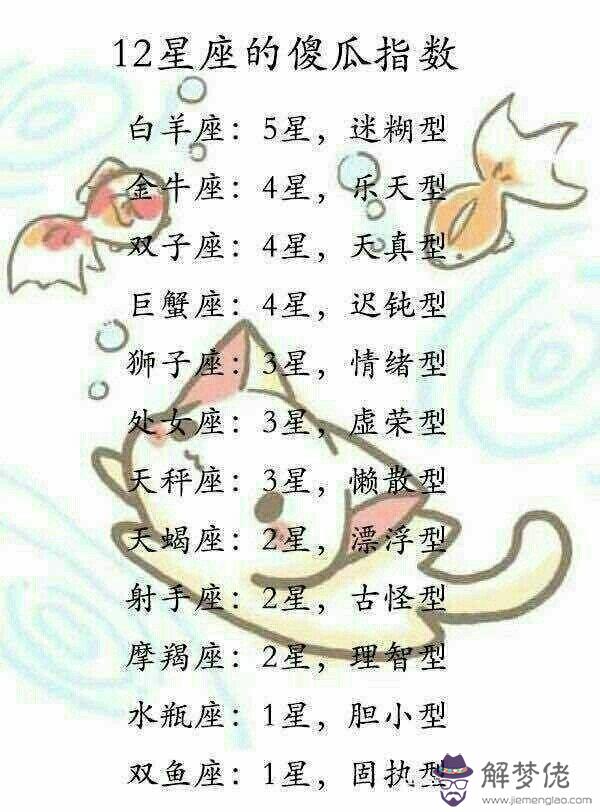 12星座的傻瓜指数
白羊座：5星，迷糊型
金牛座：4星，乐天型
双子座：4星，天真型
巨蟹座：4星，迟钝型
狮子座：3星，情绪型
处女座：3星，虚荣型
天秤座：3星，懒散型
天蝎座：2星，漂浮型
射手座：2星，古怪型
摩羯座：2星，理智型
水瓶座：1星，胆小型
双鱼座：1星，固执型
解梦佬
www.jiemenglao.com